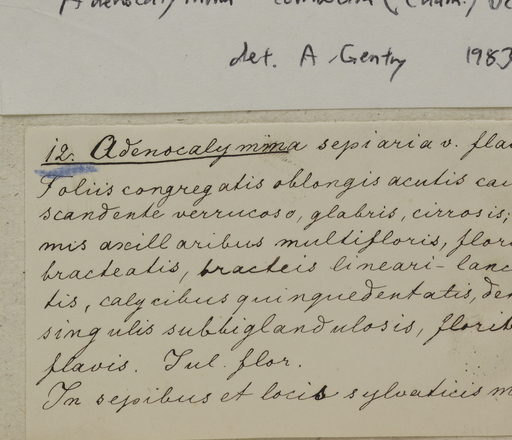 Adenocalymma comosum (Cham.) DC
det. A Gentry 1983
12. Adenocalymma sepiaria v. fla
Foliis congregatis oblongis acutis cau
scandente verrucoso, glabris, cirrosis;
mis axillaribus multifloris, flori
bracteatis, bracteis lineari-lanc
tis, calycibus quinquedentatis, den
singulis subbiglandulosis, florib
flavis. Jul. flor.
In sepibus et locis sylvaticis m